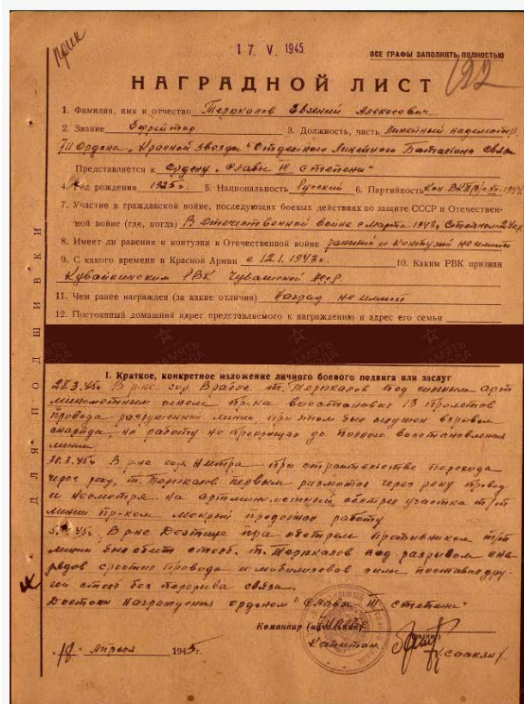 17. V. 1945
ВСЕ ГРАФЫ ЗАПОЛНЯТЬ ПОЛНОСТЬЮ
122
НАГРАДНОЙ ЛИСТ
1. Фамилия, имя и отчество Терюкалов Евгений Алексеевич
2. Звание Ефрейтор 3. Должность, часть Линейный надсмотр.
Ордена "Красной Звезды" Отдельного Линейного Батальона Связи
Представляется к Ордену "Славы III степени"
4. Год рождения 1925 г. 5. Национальность Русский 6. Партийность Кан. ВКП(б)
7. Участие в гражданской войне, последующих боевых действиях по защите СССР и Отечествен-
ной войне (где, когда) В Отечественной войне с марта 1943г.
8. Имеет ли ранения и контузии в Отечественной войне ранений и контузий не имеет
9. С какого времени в Красной Армии с 12.1.1943г. 10. Каким РВК призван
РВК Чувашской АССР
11. Чем ранее награжден (за какие отличия) Наград не имеет
12. Постоянный домашний адрес представляемого к награждению и адрес его семьи
ДЛЯ ПОДШИВКИ
I. Краткое, конкретное изложение личного боевого подвига или заслуг
28.3.45г. В р-не сор. Врабле т. Терюкалов под сильным арт
минометным огнем пр-ка восстановил 13 пролетов
провода разрушенной линии при этом был оглушен взрывом
снаряда, но работу не прекращал до полного восстановления
линии
30.3.45г. В р-не гор. Нитра при строительстве перехода
через реку, т. Терюкалов первым размотал через реку провод
и несмотря на артминометный обстрел участка т/т
линии пр-ком мокрый продолжал работу
В р-не при обстреле противником т/т
линии был сбит столб. т. Терюкалов под разрывом сна-
рядов сростил провода и мобилизовав силы поставил дру-
гой столб без перерыва связи.
Достоин награждения орденом "Славы III степени"
Командир (начальник)
Капитан
Саакян
18 Апреля 1945г.